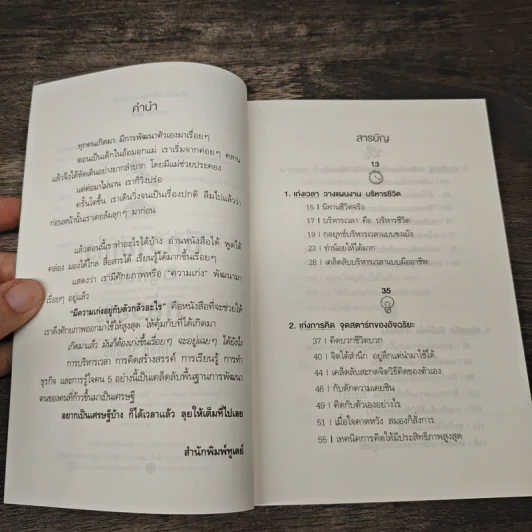 คำนำ
ทุกคนเกิดมา มีการพัฒนาตัวเองมาเรื่อยๆ
ตอนเป็นเด็กในอ้อมอกแม่ เราเริ่มจากค่อยๆ คลาน
แล้วจึงได้หัดเดินอย่างยากลำบาก โดยมีแม่ช่วยประคอง
แต่ต่อมาไม่นาน เราก็วิ่งปร๋อ
ครั้นโตขึ้น เราเดินวิ่งจนเป็นเรื่องปกติ ลืมไปแล้วว่า
ก่อนหน้านั้นเราเคยล้มลุกๆ มาก่อน
แล้วตอนนี้เราทำอะไรได้บ้าง อ่านหนังสือได้ พูดได้
คล่อง มองได้ไกล สื่อสารได้ เรียนรู้ได้มากขึ้นเรื่อยๆ
แสดงว่า เรามีศักยภาพหรือ "ความเก่ง" พัฒนามา
เรื่อยๆ อยู่แล้ว
"มีความเก่งอยู่กับตัวกลัวอะไร" คือหนังสือที่จะช่วยให้
เราดึงศักยภาพออกมาใช้ให้สูงสุด ให้คุ้มกับที่ได้เกิดมา
เกิดมาแล้ว มันก็ต้องเก่งขึ้นเรื่อยๆ จะอยู่เฉยๆ ได้ยังไง
การบริหารเวลา การคิดสร้างสรรค์ การเรียนรู้ การทำ
ธุรกิจ และการรู้ใจคน 5 อย่างนี้เป็นเคล็ดลับพื้นฐานการพัฒนา
ตนของคนที่ก้าวขึ้นมาเป็นเศรษฐี
อยากเป็นเศรษฐีบ้าง ก็ได้เวลาแล้ว ลุยให้เต็มที่ไปเลย
สำนักพิมพ์ทูเดย์
สารบัญ
13
1. เก่งเวลา วางแผนงาน บริหารชีวิต
15 | นิทานชีวิตจริง
17 | บริหารเวลา คือ บริหารชีวิต
19 | กลยุทธ์บริหารเวลาแบบเซงมัง
23 | ทำน้อยให้ได้มาก
28 | เคล็ดลับบริหารเวลาแบบมืออาชีพ
35
2. เก่งการคิด จุดสตาร์ทของอัจฉริยะ
37 | คิดบวกชีวิตบวก
40 | จิตใต้สำนึก อยู่ลึกแต่นำมาใช้ได้
44 | เคล็ดลับสะกดจิตวิธีคิดของตัวเอง
46 | กับดักความเคยชิน
49 | คิดกับตัวเองอย่างไร
51 | เมื่อใจคาดหวัง สมองก็สั่งการ
55 | เทคนิคการคิดให้มีประสิทธิภาพสูงสุด